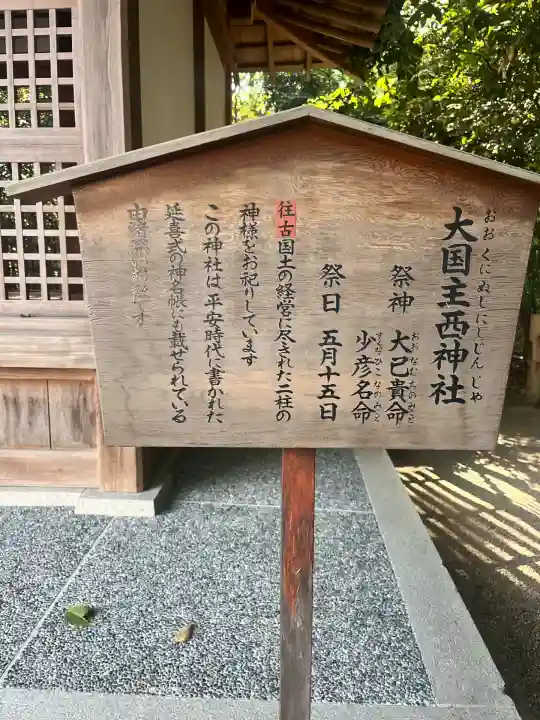 おおくにぬしにしじんじゃ
大国主西神社
祭神 大己貴命
おおなむちのみこと
少彦名命
すくなひこなのみこと
祭日 五月十五日
往古国土の経営に尽された二柱の
神様をお祀りしています
この神社は平安時代に書かれた
延喜式の神名帳にも載せられている
です